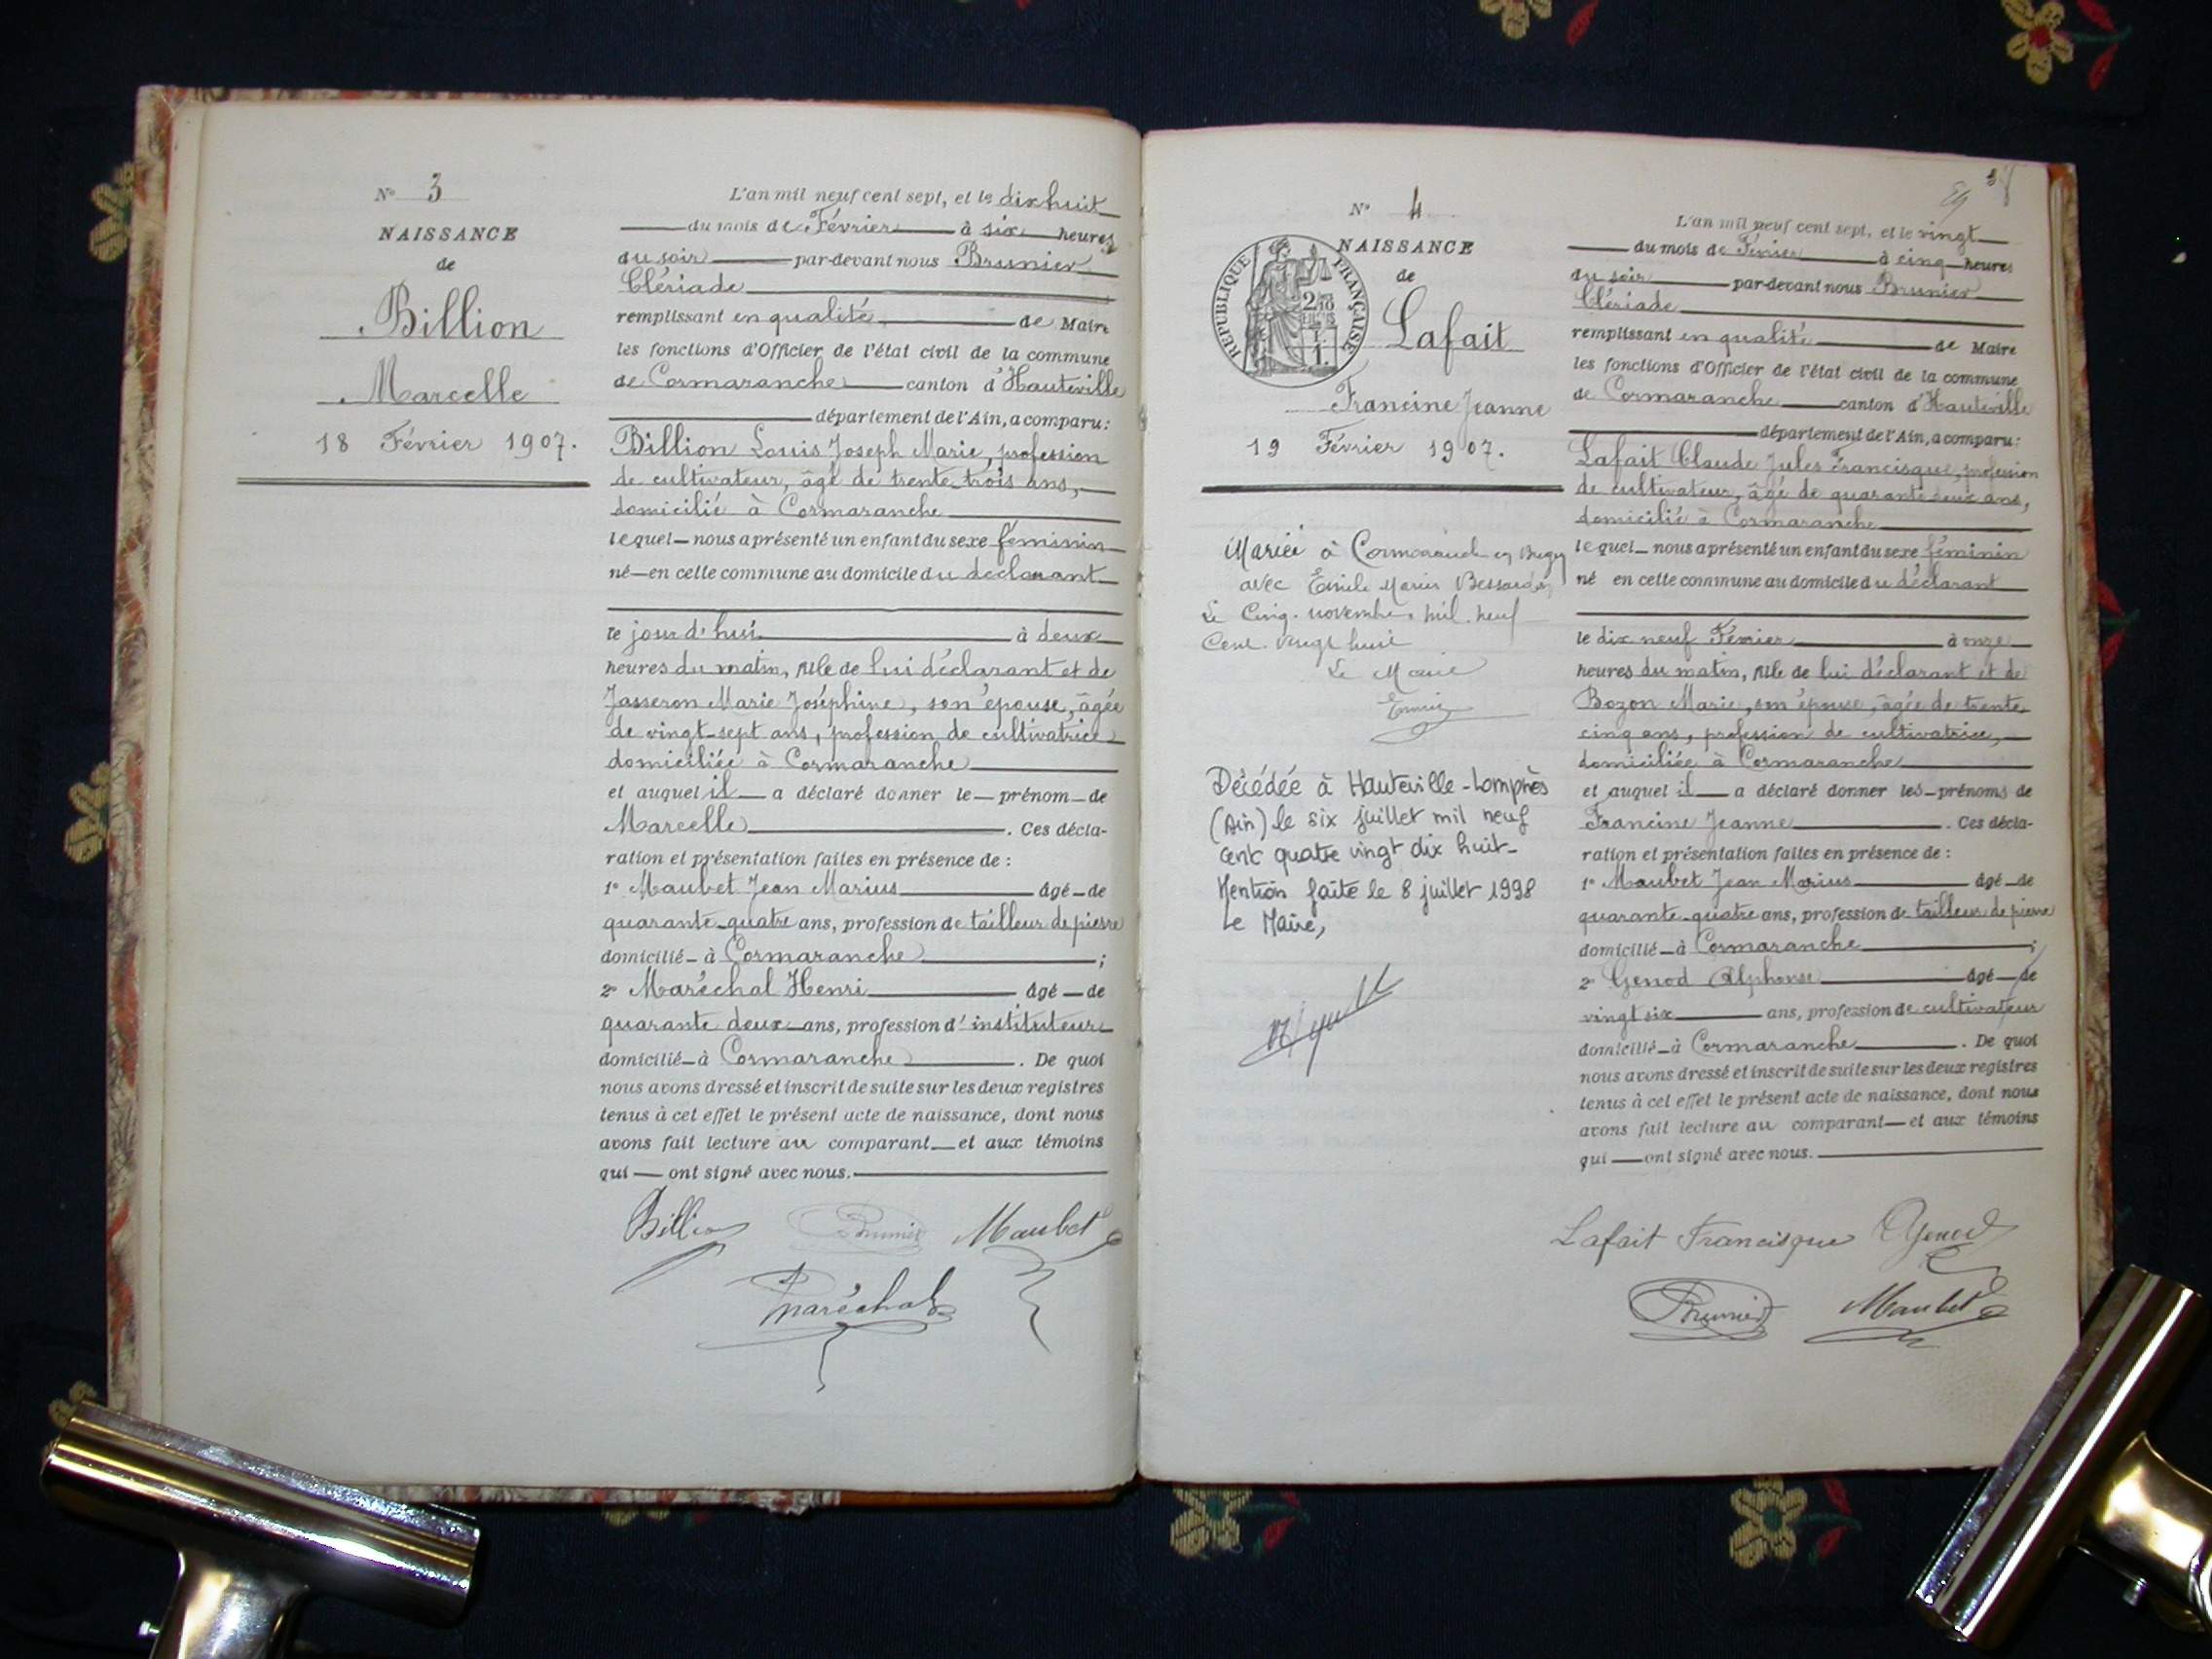 N° 3
NAISSANCE
de
Billion
Marcelle
18 Février 1907.
L'an mil neuf cent sept, et le dix huit
du mois de Février à six heures
du soir par-devant nous Brunier
Clériade
remplissant en qualité de Maire
les fonctions d'Officier de l'état civil de la commune
de Cormaranche canton d'Hauteville
département de l'Ain, a comparu:
Billion Louis Joseph Marie, profession
de cultivateur, âgé de trente trois ans,
domicilié à Cormaranche
lequel nous a présenté un enfant du sexe féminin
né en cette commune au domicile du déclarant
le jour d'hui à deux
heures du matin, fille de lui déclarant et de
Jasseron Marie Joséphine, son épouse, âgée
de vingt-sept ans, profession de cultivatrice
domiciliée à Cormaranche
et auquel il a déclaré donner le prénom de
Marcelle. Ces décla-
ration et présentation faites en présence de :
1° Maubet Jean Marius âgé de
quarante-quatre ans, profession de tailleur de pierre
domicilié à Cormaranche ;
2° Maréchal Henri âgé de
quarante deux ans, profession d'instituteur
domicilié à Cormaranche. De quoi
nous avons dressé et inscrit de suite sur les deux registres
tenus à cet effet le présent acte de naissance, dont nous
avons fait lecture au comparant et aux témoins
qui ont signé avec nous.
Billion Brunier Maubet
Maréchal
N° 4
NAISSANCE
de
REPUBLIQUE FRANÇAISE
Lafait
Francine Jeanne
19 Février 1907.
Mariée à Cormaranche en Bugey
avec Emile Marius
Le Cinq novembre mil neuf
Cent vingt huit
Le Maire
Décédée à Hauteville-Lompnès
(Ain) le six juillet mil neuf
cent quatre vingt dix huit-
Mention faite le 8 juillet 1998
Le Maire,
L'an mil neuf cent sept, et le vingt
du mois de Février à cinq heures
du soir par-devant nous Brunier
Clériade
remplissant en qualité de Maire
les fonctions d'Officier de l'état civil de la commune
de Cormaranche canton d'Hauteville
département de l'Ain, a comparu:
Lafait Claude Jules Francisque, profession
de cultivateur, âgé de quarante deux ans,
domicilié à Cormaranche
lequel nous a présenté un enfant du sexe féminin
né en cette commune au domicile du déclarant
le dix neuf Février à onze
heures du matin, fille de lui déclarant et de
Bozon Marie, son épouse, âgée de trente
cinq ans, profession de cultivatrice,
domiciliée à Cormaranche
et auquel il a déclaré donner les prénoms de
Francine Jeanne. Ces décla-
ration et présentation faites en présence de :
1° Maubet Jean Marius âgé de
quarante-quatre ans, profession de tailleur de pierre
domicilié à Cormaranche ;
2° Genod Alphonse âgé de
vingt six ans, profession de cultivateur
domicilié à Cormaranche. De quoi
nous avons dressé et inscrit de suite sur les deux registres
tenus à cet effet le présent acte de naissance, dont nous
avons fait lecture au comparant et aux témoins
qui ont signé avec nous.
Lafait Francisque Genod
Brunier Maubet